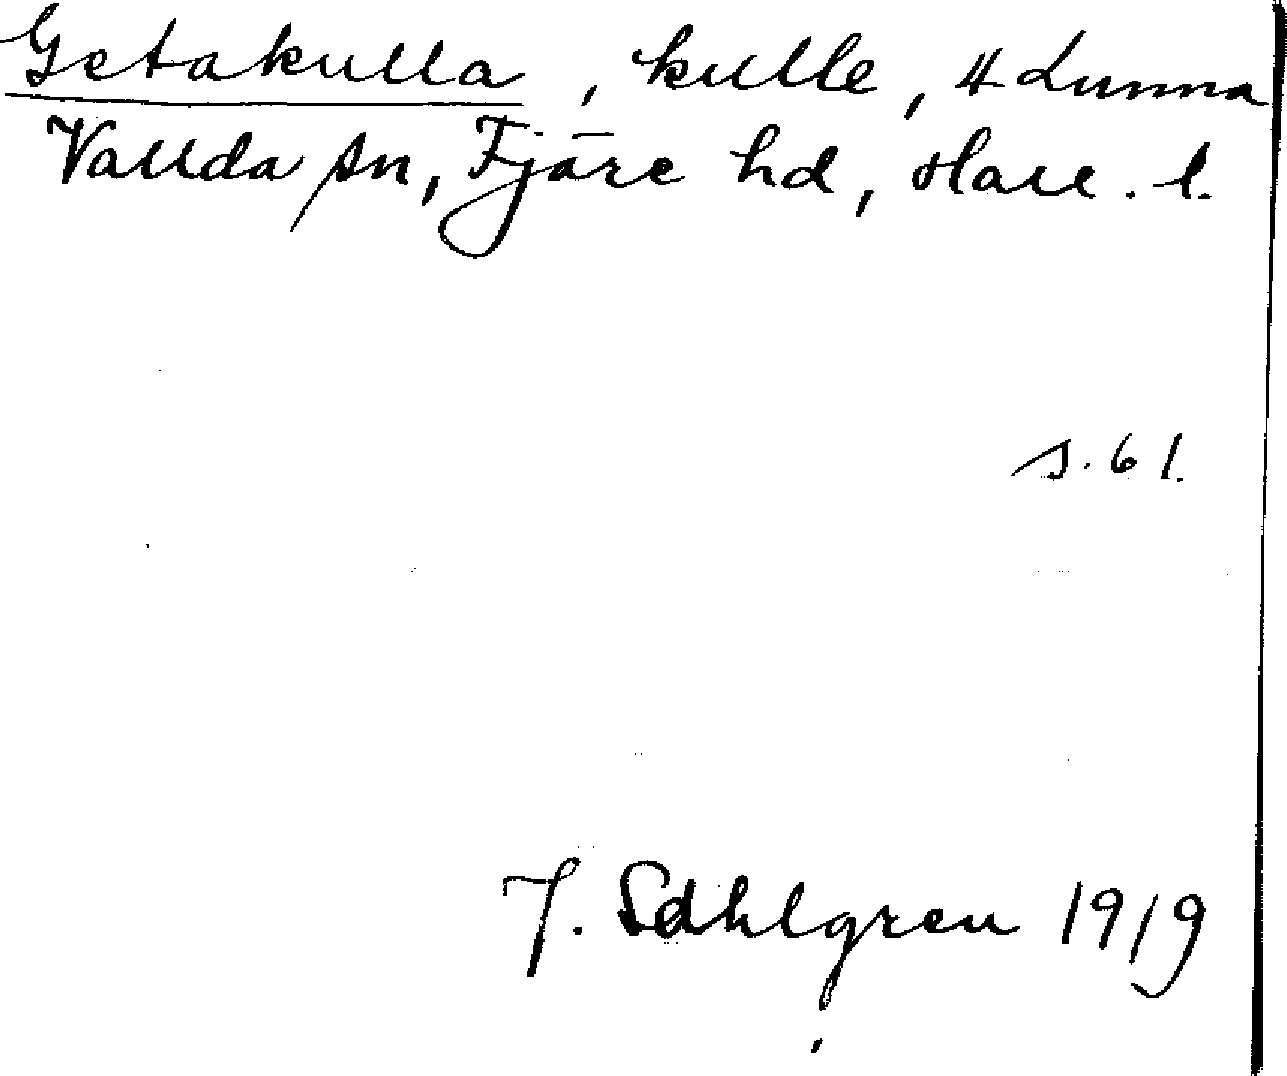 Getakulla, kulle, 4 Lunna
Vallda sn, Fjäre hd, Hall. l.
s. 61.
J. Sahlgren 1919